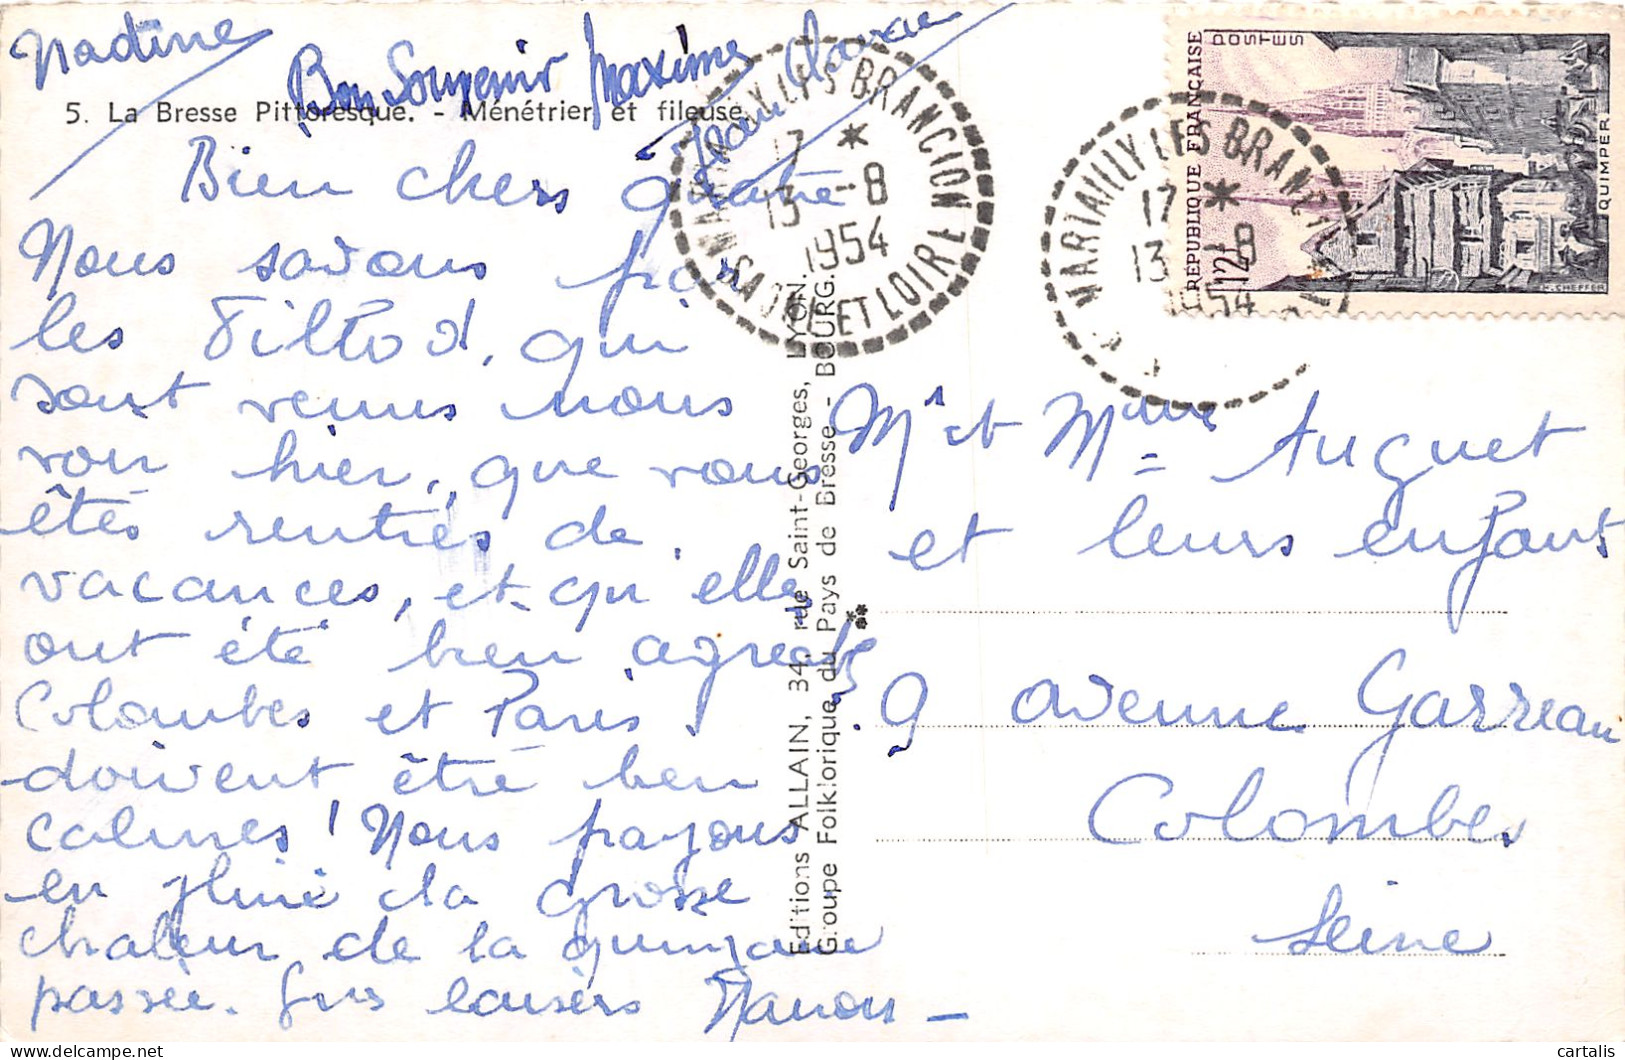 Nadine
Bon Souvenir Maxime
Jean Claude
5. La Bresse Pittoresque. - Ménétrier et fileuse.
Bien chers quatre
Nous savons par
les Tiltod, qui
sont venus nous
voir hier, que vous
êtes rentrés de
vacances, et qu'elles
ont été bien agréables
Colombes et Paris
doivent être bien
calmes ! Nous payons
en pluie la grosse
chaleur de la quinzaine
passée. Gros baisers Manou -
Editions ALLAIN, 34, rue Saint-Georges, LYON.
Groupe Folklorique du Pays de Bresse - BOURG.
MARTAILLY LES BRANCION
17 *
13 -8
1954
SAONE ET LOIRE
MARTAILLY LES BRANCION
17 *
13 -8
1954
POSTES
REPUBLIQUE FRANÇAISE
12F
QUIMPER
H. CHEFFER
Mr et Mme Auguet
et leurs enfants
9 avenue Garreau
Colombes
Seine
cartalis